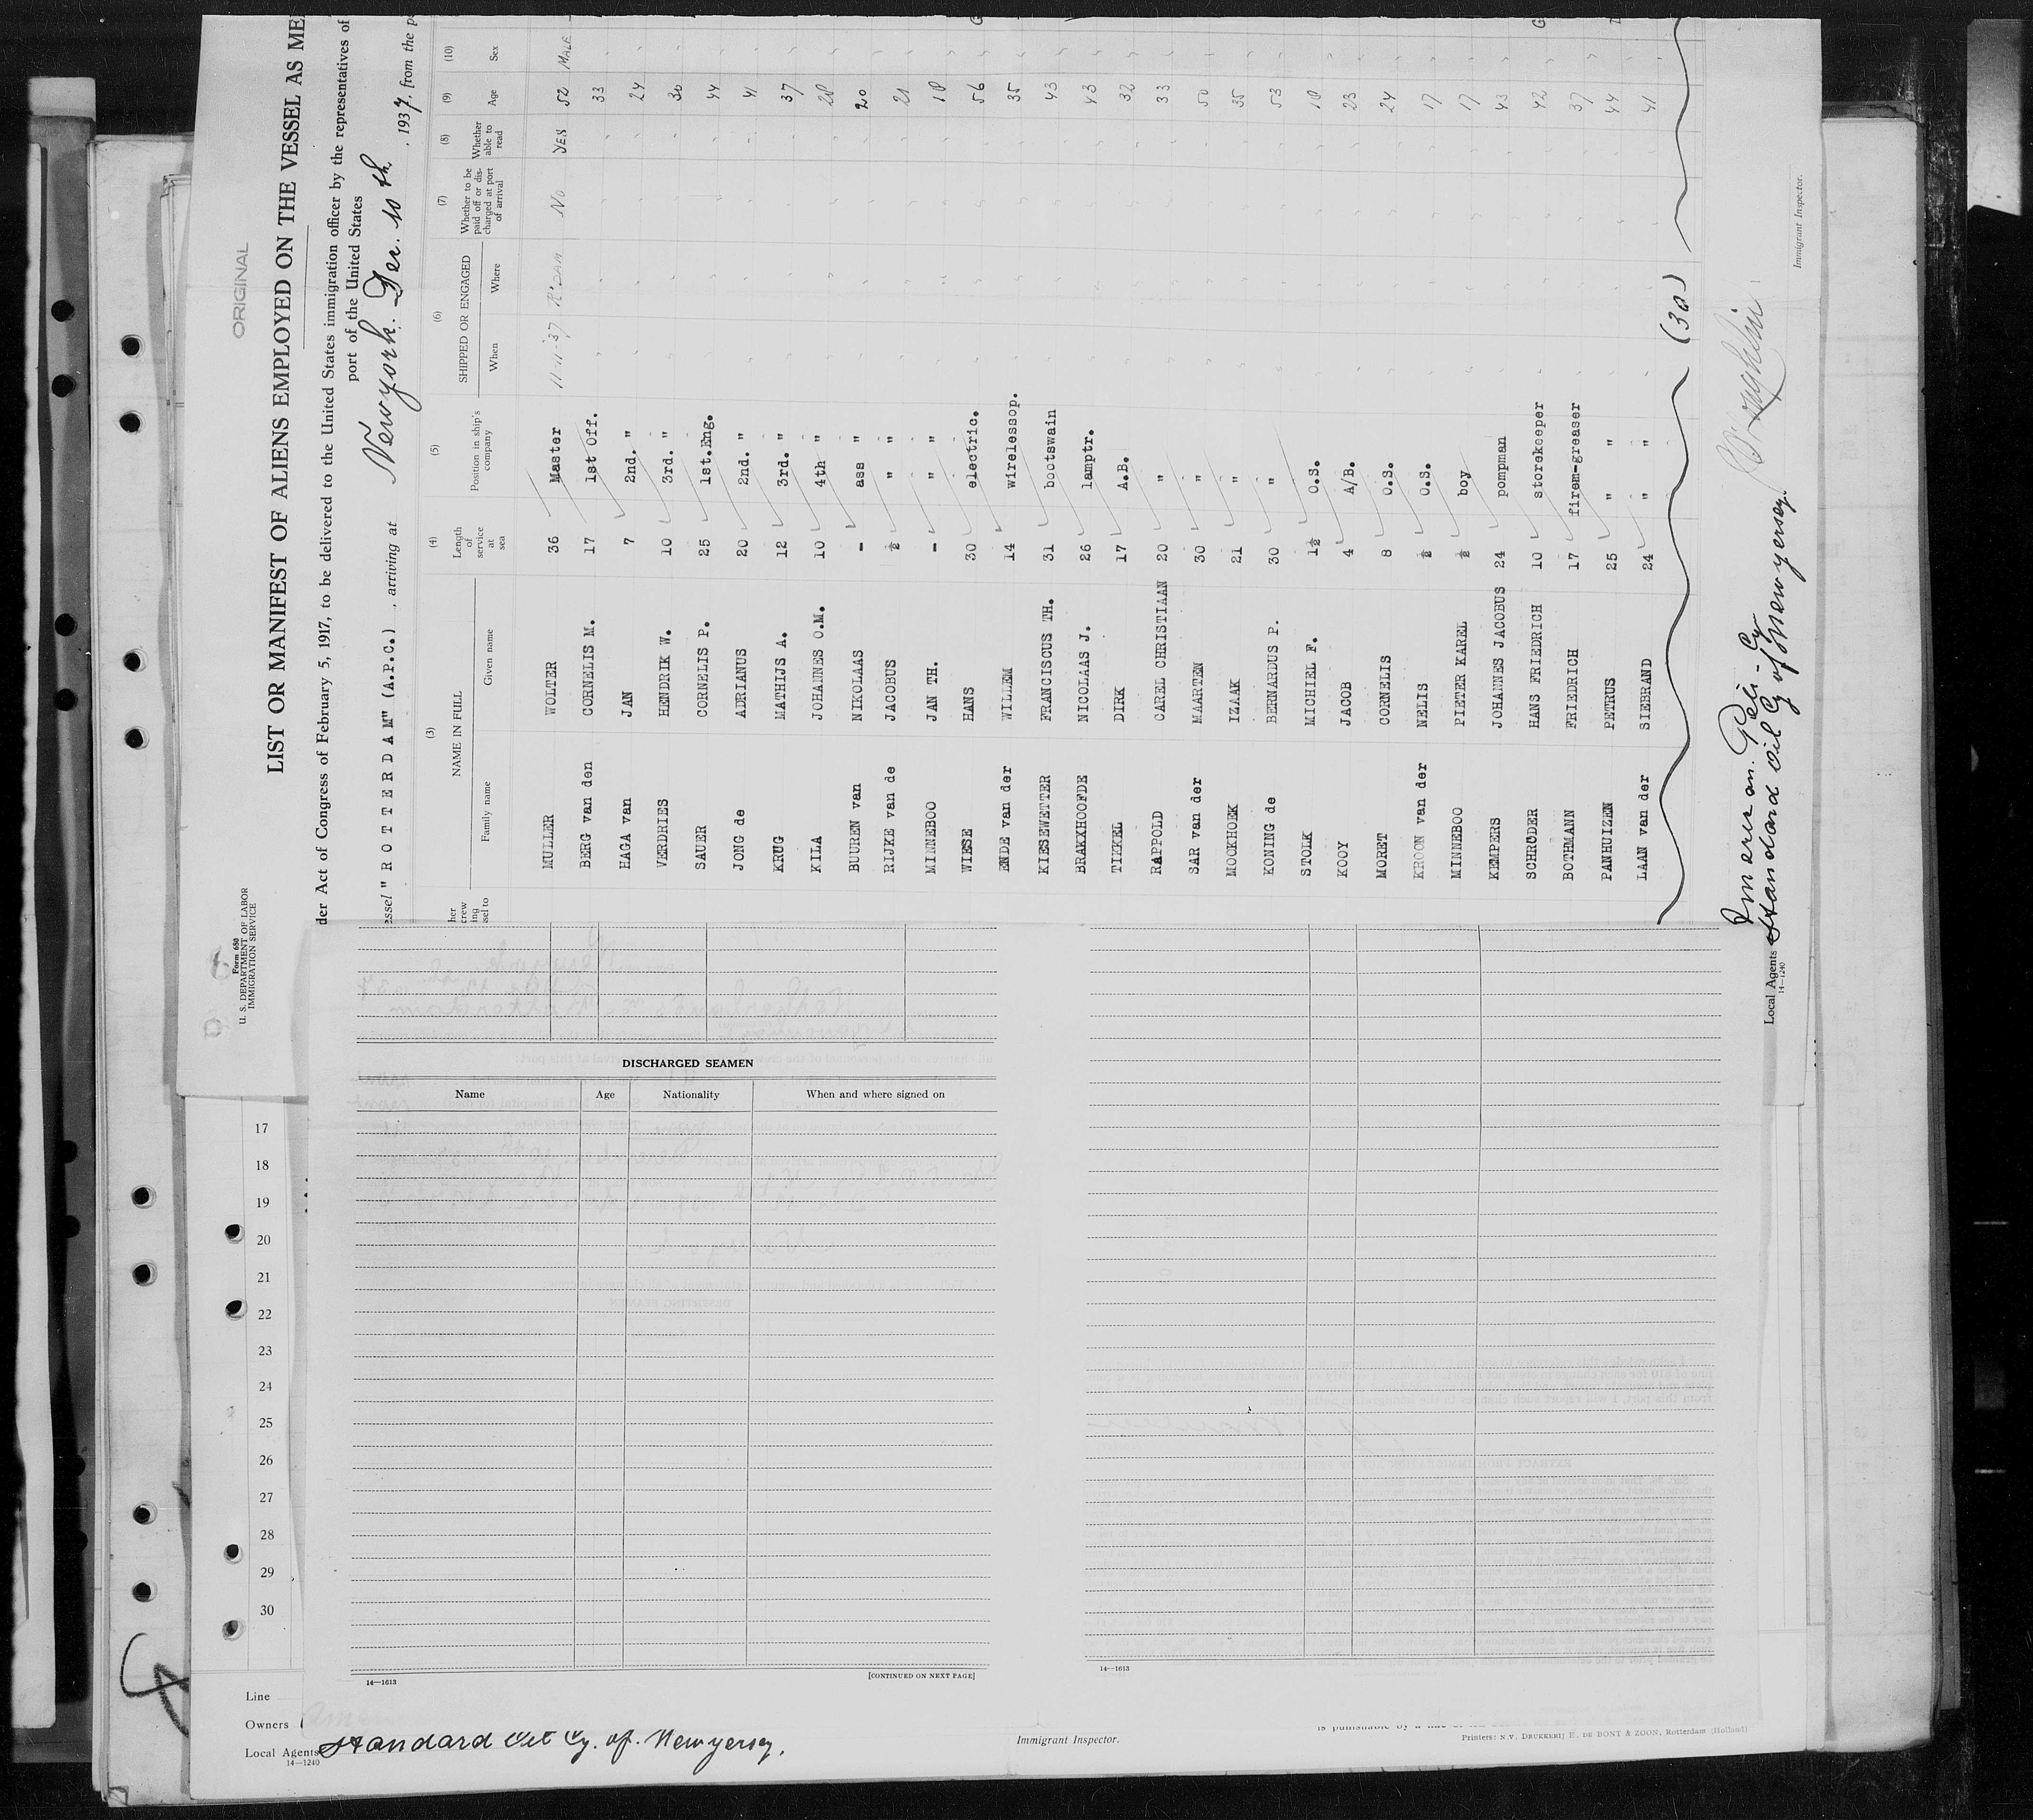 ORIGINAL
Form 680
U. S. DEPARTMENT OF LABOR
IMMIGRATION SERVICE
LIST OR MANIFEST OF ALIENS EMPLOYED ON THE VESSEL AS ME
der Act of Congress of February 5, 1917, to be delivered to the United States immigration officer by the representatives of
port of the United States
essel " R O T T E R D A M " (A.P.C.) , arriving at Newyork. Dec. 10 th , 1937, from the p
(3) (4) (5) (6) (7) (8) (9) (10)
NAME IN FULL Length of service at sea Position in ship's company SHIPPED OR ENGAGED Whether to be paid off or discharged at port of arrival Whether able to read Age Sex
Family name Given name When Where
her
crew
ing
sel to
MULLER WOLTER 36 Master 11-11-37 R'DAM No YES 52 MALE
BERG van den CORNELIS M. 17 1st Off. 33
HAGA van JAN 7 2nd. " 24
VERDRIES HENDRIK W. 10 3rd. " 30
SAUER CORNELIS P. 25 1st.Eng. 44
JONG de ADRIANUS 20 2nd. " 41
KRUG MATHIJS A. 12 3rd. " 37
KILA JOHANNES O.M. 10 4th " 28
BUUREN van NIKOLAAS - ass " 20
RIJKE van de JACOBUS ½ " " 21
MINNEBOO JAN TH. - " " 18
WIESE HANS 30 electric. 56
ENDE van der WILLEM 14 wirelessop. 35
KIESEWETTER FRANCISCUS TH. 31 bootswain 43
BRAKXHOOFDE NICOLAAS J. 26 lamptr. 43
TIKKEL DIRK 17 A.B. 32
RAPPOLD CAREL CHRISTIAAN 20 " 33
SAR van der MAARTEN 30 " 50
MOOKHOEK IZAAK 21 " 35
KONING de BERNARDUS P. 30 " 53
STOLK MICHIEL F. 1½ O.S. 18
KOOY JACOB 4 A/B. 23
MORET CORNELIS 8 O.S. 24
KROON van der NELIS ½ O.S. 17
MINNEBOO PIETER KAREL ½ boy 17
KEMPERS JOHANNES JACOBUS 24 pompman 43
SCHRUDER HANS FRIEDRICH 10 storekeeper 42
BOTHMANN FRIEDRICH 17 firem-greaser 37
PANHUIZEN PETRUS 25 " " 44
LAAN van der SIEBRAND 24 " " 41
(30)
Local Agents Standard Oil Cy of Newyersey.
14—1240
Immigrant Inspector.
DISCHARGED SEAMEN
Name Age Nationality When and where signed on
17
18
19
20
21
22
23
24
25
26
27
28
29
30
14—1613
[CONTINUED ON NEXT PAGE]
14—1613
Line
Owners
Local Agents Standard Oil Cy. of. Newyersey.
14—1240
Immigrant Inspector.
Printers: N.V. DRUKKERIJ E. DE BONT & ZOON, Rotterdam (Holland)